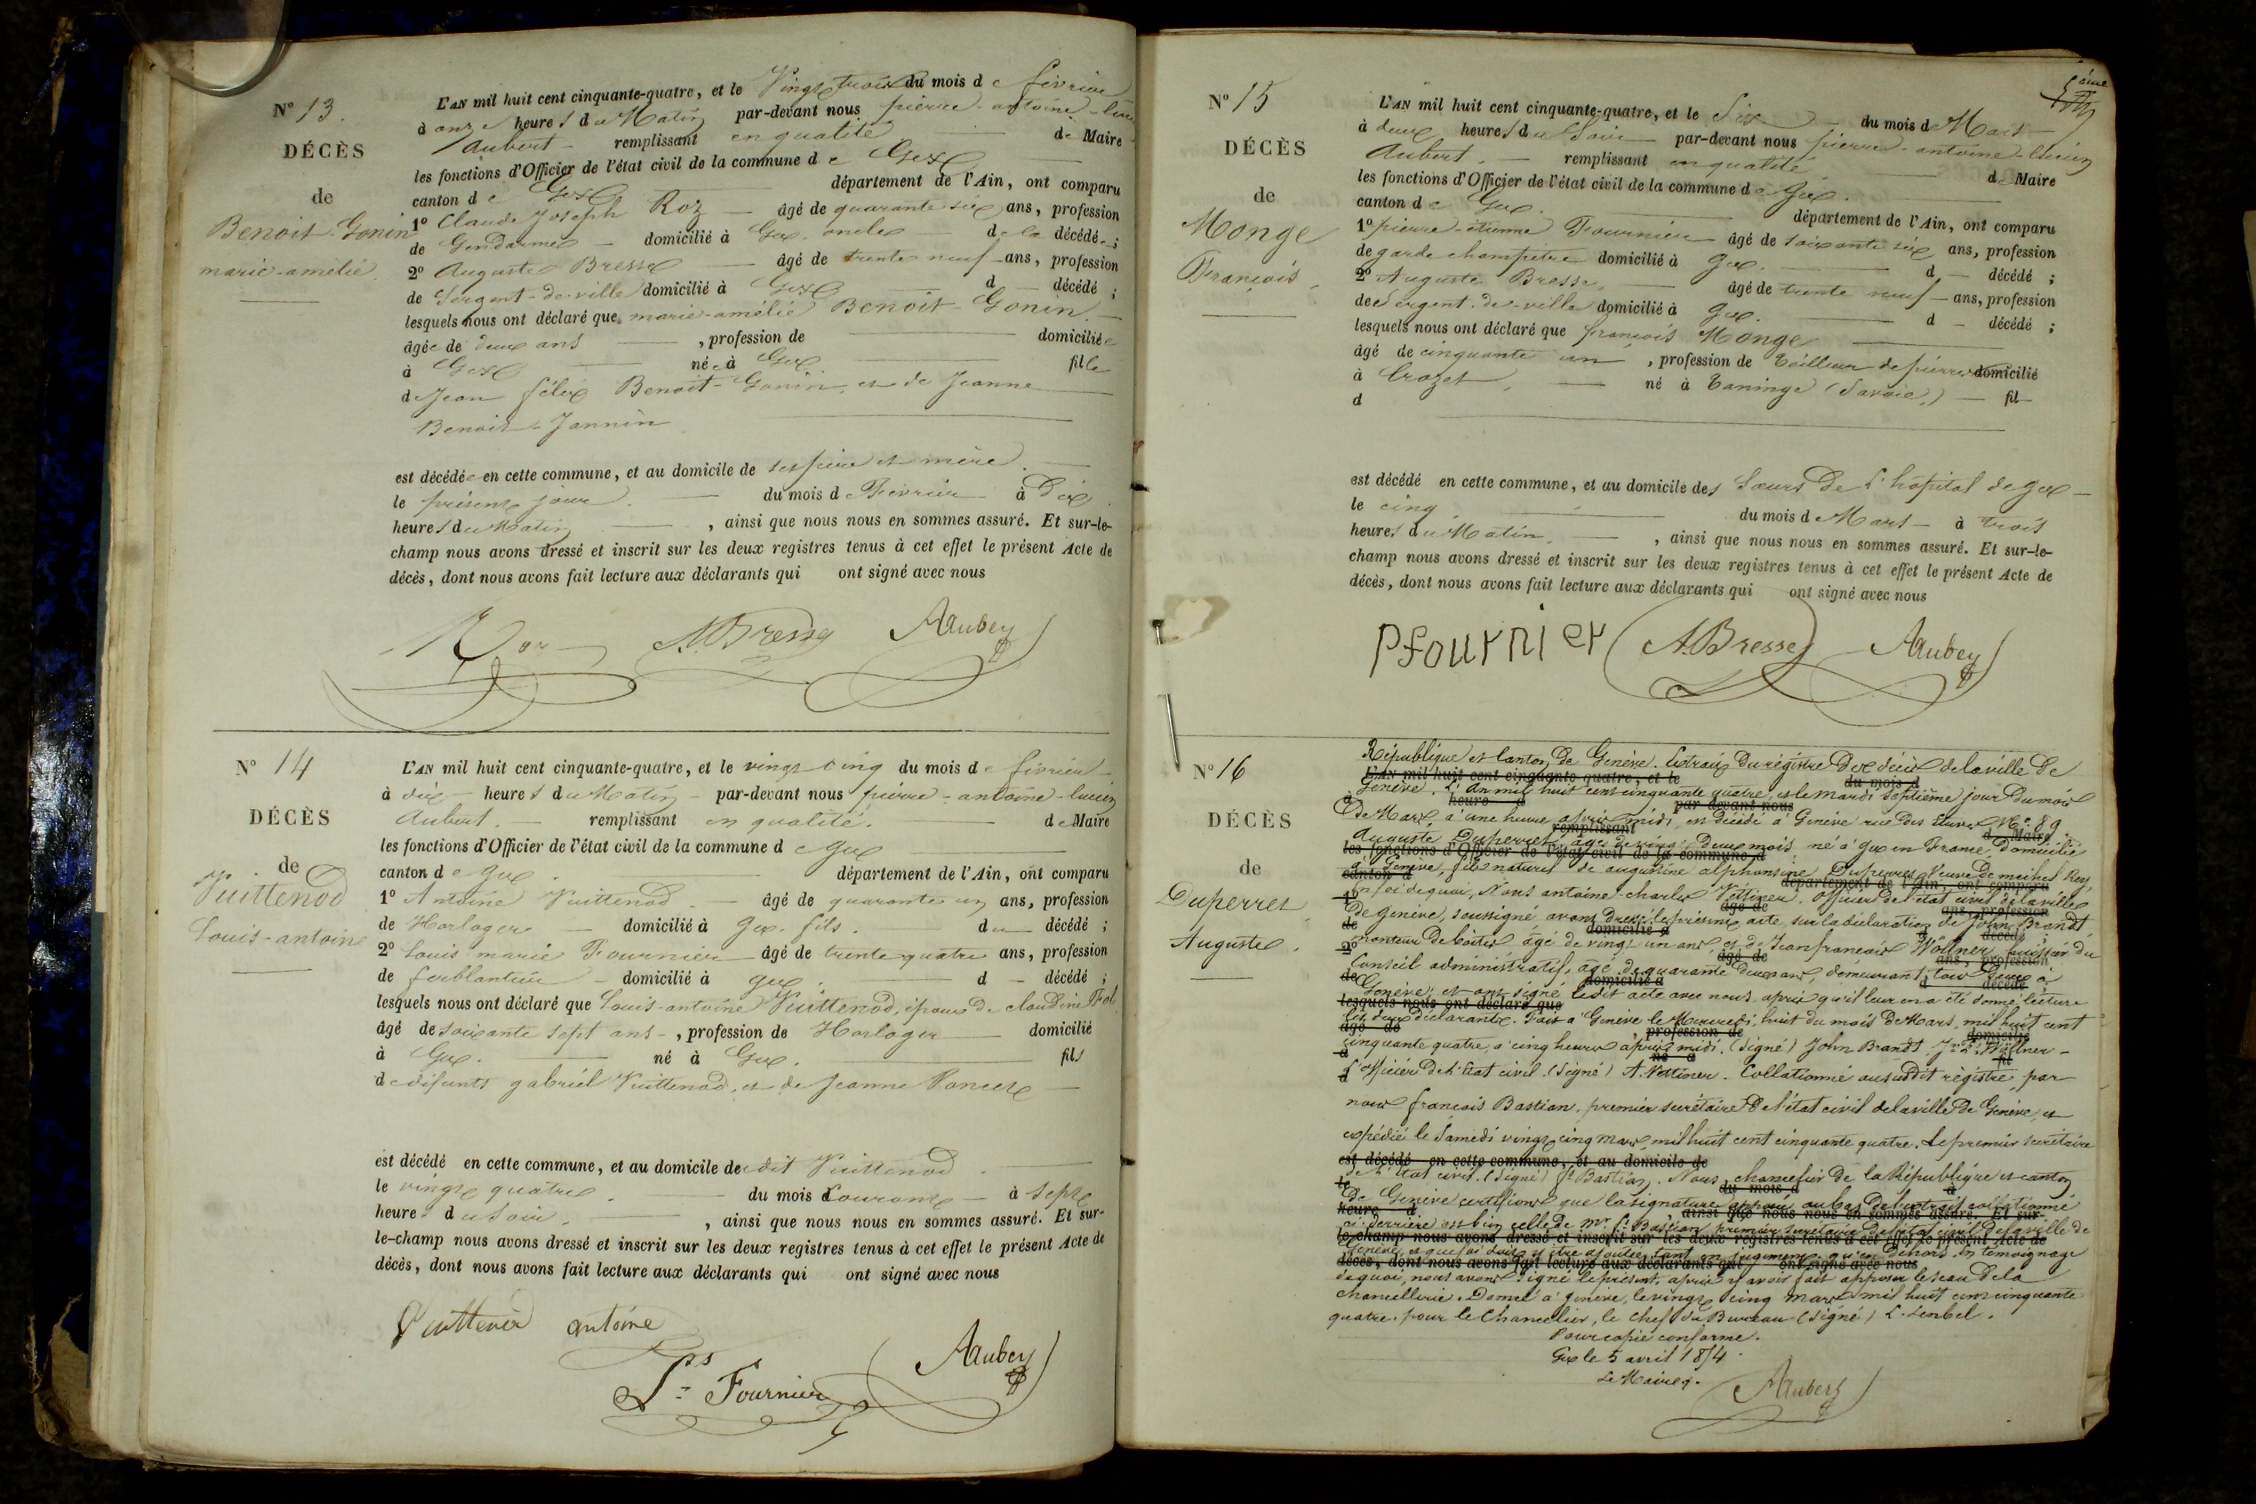 N° 13.
DÉCÈS
de
Benoit-Gonin
marie-amélie.
L'AN mil huit cent cinquante-quatre, et le Vingt trois du mois de février
à onze heures du Matin par-devant nous pierre-antoine-
Aubert - remplissant en qualité de Maire
les fonctions d'Officier de l'état civil de la commune de Gex
canton de Gex département de l'Ain, ont comparu
1° Claude Joseph Roz âgé de quarante six ans, profession
de Gendarme domicilié à Gex. oncle de la décédée;
2° Auguste Bresse âgé de trente neuf ans, profession
de Sergent-de-ville domicilié à Gex d - décédé;
lesquels nous ont déclaré que marie-amélie Benoit-Gonin.
âgée de deux ans , profession de domiciliée
à Gex née à Gex fille
de Jean félix Benoit-Gonin et de Jeanne
Benoit-Jannin
est décédée en cette commune, et au domicile de ses père et mère.
le présent jour. du mois de Février à Dix
heures du Matin , ainsi que nous nous en sommes assuré. Et sur-le-
champ nous avons dressé et inscrit sur les deux registres tenus à cet effet le présent Acte de
décès, dont nous avons fait lecture aux déclarants qui ont signé avec nous
Roz A.Bresse AAubert
N° 14
DÉCÈS
de
Vuittenod
Louis-antoine
L'AN mil huit cent cinquante-quatre, et le vingt cinq du mois de février
à dix heures du Matin par-devant nous pierre-antoine-lucien
Aubert. - remplissant en qualité. de Maire
les fonctions d'Officier de l'état civil de la commune de Gex
canton de Gex. département de l'Ain, ont comparu
1° Antoine Vuittenod. âgé de quarante un ans, profession
de Horloger domicilié à Gex. fils. du décédé;
2° Louis marie Fournier âgé de trente quatre ans, profession
de ferblantier domicilié à gex. d - décédé;
lesquels nous ont déclaré que Louis-antoine Vuittenod, époux de claudine Fol
âgé de soixante sept ans -, profession de Horloger domicilié
à Gex. né à Gex. fils
de défunts gabriel Vuittenod, et de Jeanne Poncet
est décédé en cette commune, et au domicile dudit Vuittenod.
le vingt quatre. du mois Courant à Sept
heures du Soir. , ainsi que nous nous en sommes assuré. Et sur-
le-champ nous avons dressé et inscrit sur les deux registres tenus à cet effet le présent Acte de
décès, dont nous avons fait lecture aux déclarants qui ont signé avec nous
Vuittenod antoine
Ls Fournier AAubert
5ème
N° 15
DÉCÈS
de
Monge
François.
L'AN mil huit cent cinquante-quatre, et le Six du mois de Mars
à deux heures du Soir par-devant nous pierre-antoine-lucien
Aubert. - remplissant en qualité de Maire
les fonctions d'Officier de l'état civil de la commune de Gex.
canton de Gex. département de l'Ain, ont comparu
1° pierre-étienne Fournier âgé de soixante six ans, profession
de garde champêtre domicilié à Gex. d - décédé;
2° Auguste Bresse. âgé de trente neuf ans, profession
de Sergent-de-ville domicilié à Gex. d - décédé;
lesquels nous ont déclaré que françois Monge
âgé de cinquante un , profession de Tailleur de pierres domicilié
à Crozet. né à Taninge (Savoie.) fil
d
est décédé en cette commune, et au domicile des Sœurs De L'hopital de gex
le cinq du mois de Mars à trois
heures du Matin. , ainsi que nous nous en sommes assuré. Et sur-le-
champ nous avons dressé et inscrit sur les deux registres tenus à cet effet le présent Acte de
décès, dont nous avons fait lecture aux déclarants qui ont signé avec nous
Pfournier A.Bresse AAubert
N° 16
DÉCÈS
de
Duperret
Auguste.
République et Canton de Genève. Extrait du régistre Des décès de la ville De
Genève. L'An mil huit cent cinquante quatre, et le mardi septième jour du mois
De Mars, à une heure après midi, est décédé à Genève rue des Etuves N° 89.
Auguste Duperret, âgé de vingt Deux mois né à Gex en France, Domicilié
à Genève, fils naturel de augustine alphonsine Duperret Veuve De michel Roy,
En foi de quoi, Nous antoine-charles Vettiner. officier de l'état civil de la ville
De genève, soussigné avons Dressé le présent acte, sur la déclaration de John Brandt,
monteur De boites âgé de vingt un ans, et de Jean françois Wöllner, huissier du
Conseil administratif, âgé de quarante deux ans, demeurant, tous Deux à
Genève; et ont signé ledit acte avec nous après qu'il leur en a été donné lecture
les deux déclarants. Fait à Genève le Mercredi, huit du mois De Mars, mil huit cent
cinquante quatre, à cinq heures après midi. (signé) John Brandt. Wöllner -
L'officier de L'Etat civil. (Signé) A. Vettiner. Collationné au susdit régistre, par
nous françois Bastian. premier secrétaire De l'état civil de la ville De Genève, et
expédié le Samedi vingt cinq mars mil huit cent cinquante quatre. Le premier secrétaire
de l'Etat civil. (Signé) f. Bastian. Nous, chancelier De la République et canton
De Genève certifions que la signature apposée au bas De l'extrait collationné
ci-derrière est bien celle de Mr. f. Bastian premier secrétaire De l'état civil De la ville de
Genève, et que foi doit y être ajoutée tant en jugement qu'en Dehors. En témoignage
de quoi, nous avons Signé le présent, après y avoir fait apposer le seau De la
chancellerie. Donné à genève, le vingt cinq mars mil huit cent cinquante
quatre. pour le Chancelier, le Chef du Bureau (Signé) L. Lenbel.
Pour copie conforme.
Gex le 5 avril 1854.
Le Maire.
AAubert